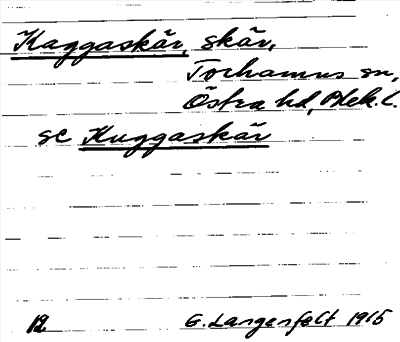 Kaggaskär, skär,
Torhamns sn,
Östra hd, Blek. l.
se Kuggaskär
12 G. Langenfelt 1915